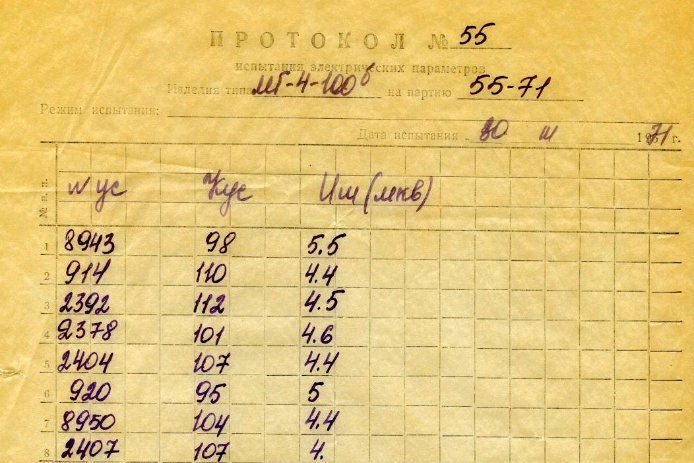 ПРОТОКОЛ № 55
испытания электрических параметров
Изделия типа МГ-4-100б на партию 55-71
Режим испытания:
Дата испытания 30 III 1971 г.
№ п. п. N ус Кус Uш (мкв)
1 8943 98 5.5
2 914 110 4.4
3 2392 112 4.5
4 2378 101 4.6
5 2404 107 4.4
6 920 95 5
7 8950 104 4.4
8 2407 107 4.